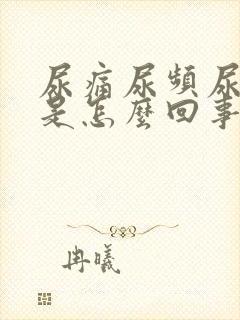 尿痛尿频尿
是怎麽回事
冉曦